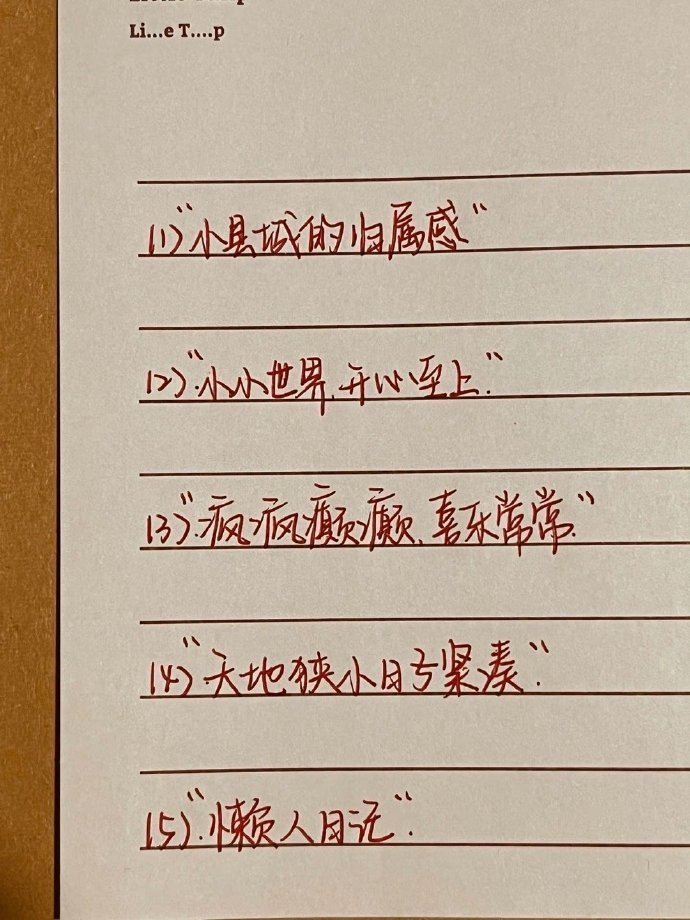 Li...e T....p
(1)“小县城的归属感”
(2)“小小世界,开心至上.”
(3)“疯疯癫癫,喜乐常常.”
(4)“天地狭小日亏紧凑”.
(5)“懒人日记”.